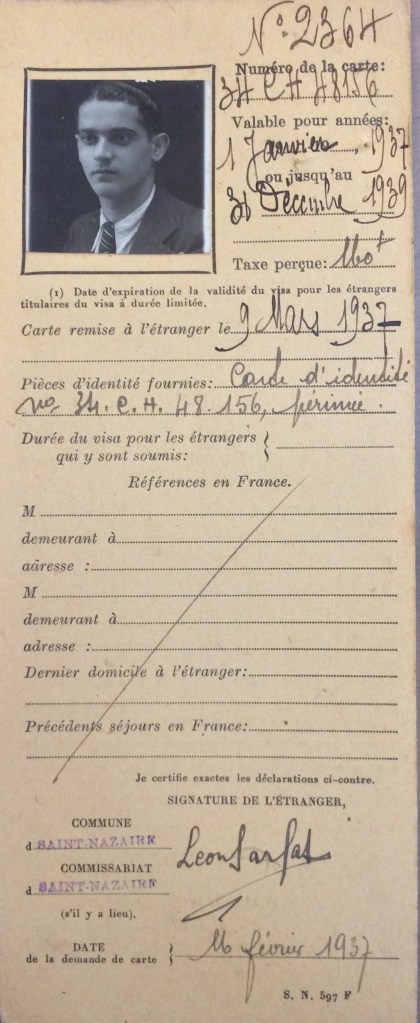 N° 2364
Numéro de la carte:
34 CH 48156
Valable pour années:
1 Janvier 1937
ou jusqu'au
31 Décembre 1939
Taxe perçue:
(1) Date d'expiration de la validité du visa pour les étrangers
titulaires du visa à durée limitée.
Carte remise à l'étranger le 9 Mars 1937
Pièces d'identité fournies: Carte d'identité
no 34. C. H. 48.156, périmée.
Durée du visa pour les étrangers {
qui y sont soumis:
Références en France.
M
demeurant à
adresse :
M
demeurant à
adresse :
Dernier domicile à l'étranger:
Précédents séjours en France:
Je certifie exactes les déclarations ci-contre.
SIGNATURE DE L'ÉTRANGER,
COMMUNE
d SAINT-NAZAIRE
Leon Sarfat
COMMISSARIAT
d SAINT-NAZAIRE
(s'il y a lieu).
DATE
de la demande de carte } février 1937
S. N. 597 F